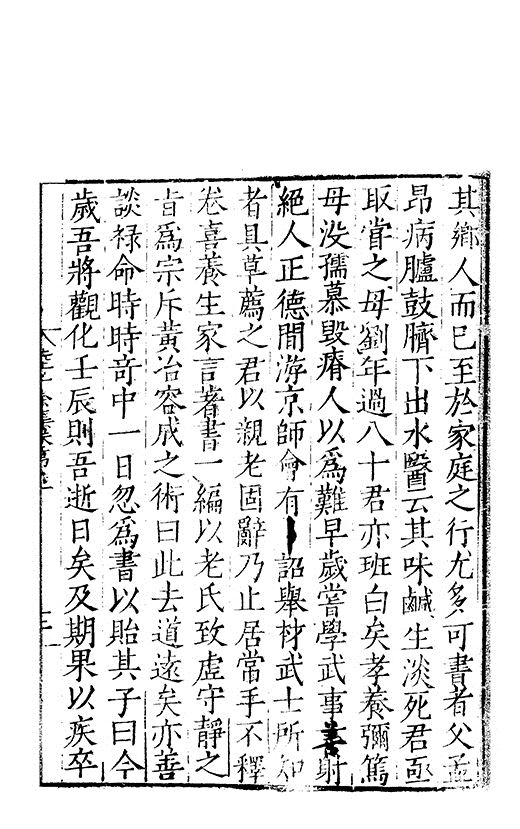 其鄉人而已至於家庭之行尤多可書者父孟
昂病臚鼓臍下出水醫云其味鹹生淡死君亟
取嘗之母劉年過八十君亦班白矣孝養彌篤
母没孺慕毀瘠人以為難早歲嘗學武事善射
絕人正德間游京師會有詔舉材武士所知
者具草薦之君以親老固辭乃止居常手不釋
卷喜養生家言著書一編以老氏致虛守靜之
旨為宗斥黃冶容成之術曰此去道遠矣亦善
談祿命時時奇中一日忽為書以貽其子曰今
歲吾將觀化壬辰則吾逝日矣及期果以疾卒